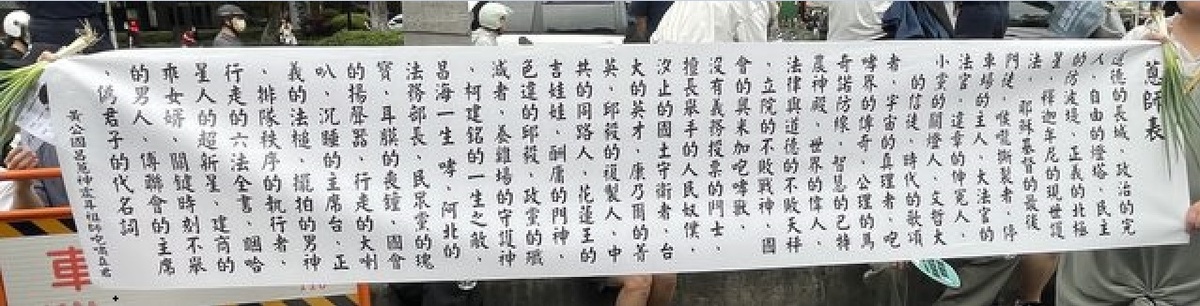 蔥師表
道德的長城、政治的完
人、自由的燈塔、民主
的防波堤、正義的北極
星、釋迦牟尼的現世護
法、耶穌基督的最後
門徒、喉嚨撕裂者、停
車場的主人、大法官的
法官、違章的伸冤人、
小黨的關燈人、文哲大
的信徒、時代的歌頌
者、宇宙的真理者、咆
哮界的傳奇、公理的馬
奇諾防線、智慧的巴特
農神殿、世界的偉人、
法律與道德的不敗天秤
、立院的不敗戰神、國
會的奧米加咆哮獸、
沒有義務投票的鬥士、
擅長舉手的人民奴僕、
汐止的國土守衛者、台
大的英才、康乃爾的菁
英、邱毅的複製人、中
共的同路人、花蓮王的
言娃娃、酬庸的門神、
色違的邱毅、政黨的殲
滅者、養雞場的守護神
、柯建銘的一生之敵、
昌海一生哮、阿北的
法務部長、民眾黨的瑰
寶、耳膜的喪鐘、國會
的揚聲器、行走的大喇
叭、沉睡的主席台、正
義的法槌、擺拍的男神
、排隊秩序的執行者、
行走的六法全書、咽哈
星人的超新星、建商的
乖女婿、關鍵時刻不舉
的男人、傳聯會的主席
、偽君子的代名詞
黃公國昌蔥神震耳祖師
車